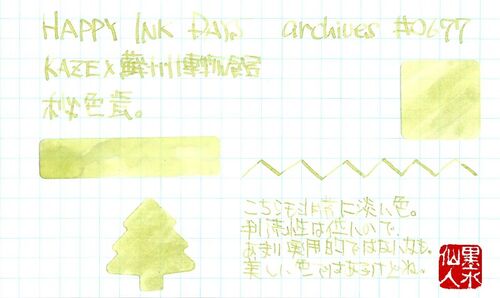 HAPPY INK DAYS archives #0677
KAZE × 蘇州博物館
秘色瓷。
こちらも非常に淡い色。
判読性は低いので、
あまり実用的ではないかも。
美しい色ではあるけどね。
墨水
仙人